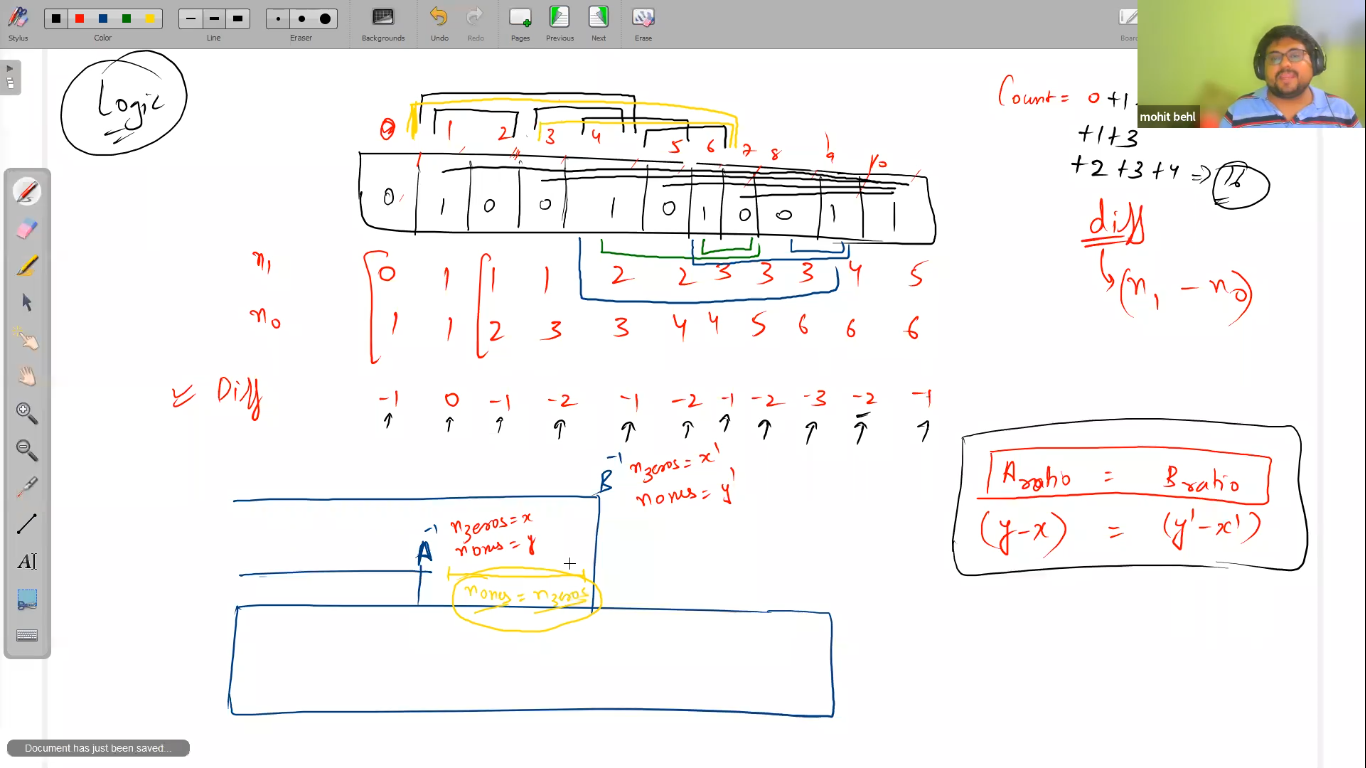 Stylus Color Line Eraser Backgrounds Undo Redo Pages Previous Next Erase Board
mohit behl
Logic
Count = 0 +1
+1 +3
+2 +3 +4 ⇒ 16
0 1 2 3 4 5 6 7 8 9 10
0 1 0 0 1 0 1 0 0 1 1
n₁ 0 1 1 1 2 2 3 3 3 4 5
n₀ 1 1 2 3 3 4 4 5 6 6 6
Diff -1 0 -1 -2 -1 -2 -1 -2 -3 -2 -1
diff
(n₁ - n₀)
B -1 nzeros = x'
nones = y'
A -1 nzeros = x
nones = y
nones = nzeros
A ratio = B ratio
(y-x) = (y'-x')
A
Document has just been saved...